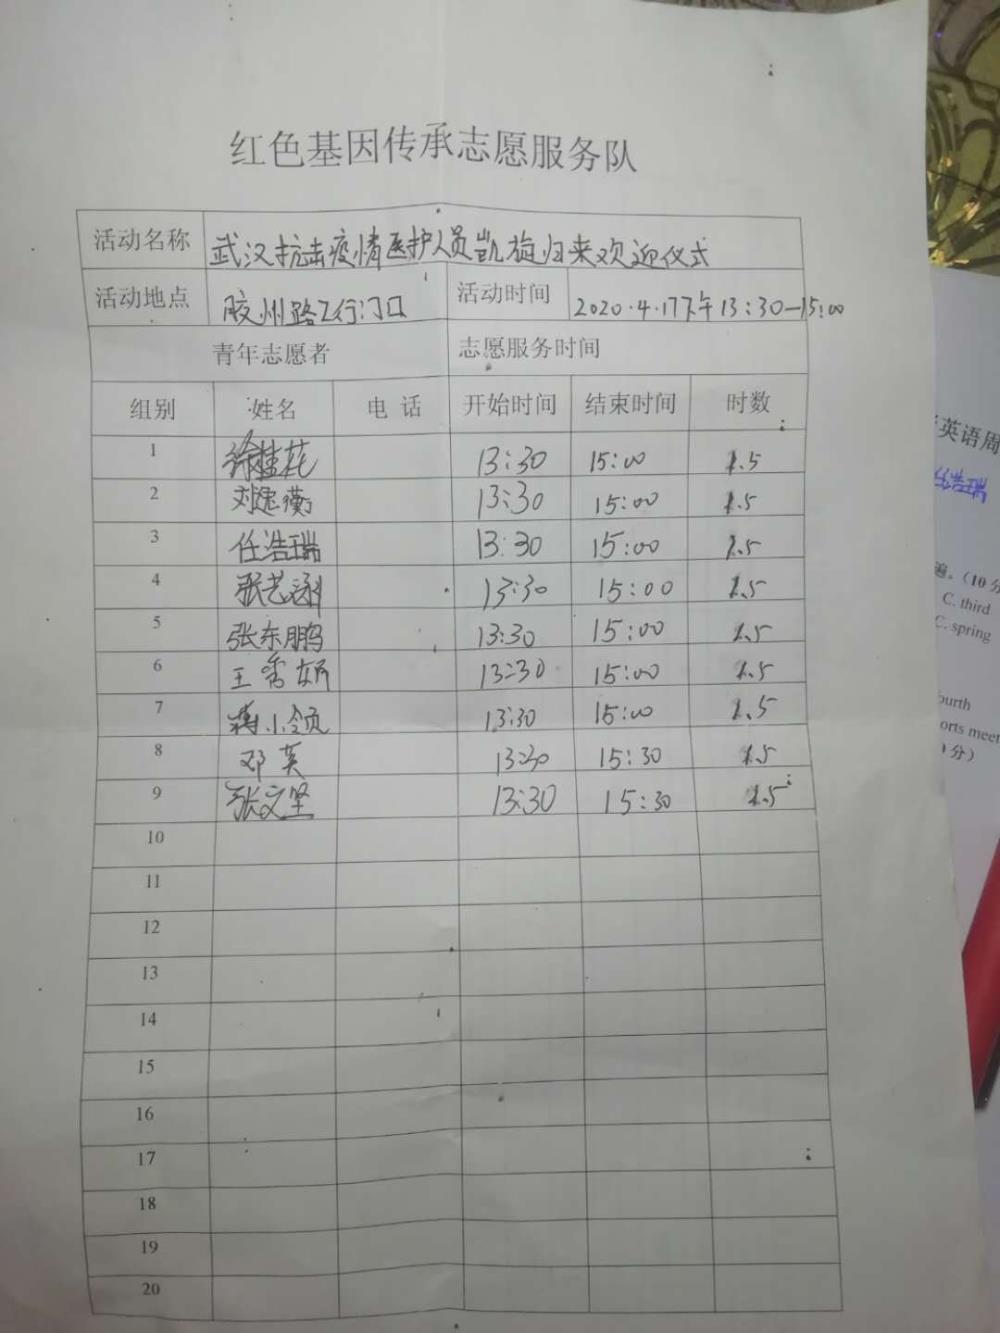 红色基因传承志愿服务队
活动名称 武汉抗击疫情医护人员凯旋归来欢迎仪式
活动地点 胶州路工行门口 活动时间 2020.4.17下午13:30—15:00
青年志愿者 志愿服务时间
组别 姓名 电话 开始时间 结束时间 时数
1 徐桂花 13:30 15:00 1.5
2 刘逸衡 13:30 15:00 1.5
3 任浩瑞 13:30 15:00 1.5
4 张艺涵 13:30 15:00 1.5
5 张东鹏 13:30 15:00 1.5
6 王秀娟 13:30 15:00 1.5
7 小领 13:30 15:00 1.5
8 邓英 13:30 15:30 1.5
9 张文坚 13:30 15:30 1.5
10
11
12
13
14
15
16
17
18
19
20
英语周
任浩瑞
遍。（10分
C. third
C. spring
ourth
orts meet
分）